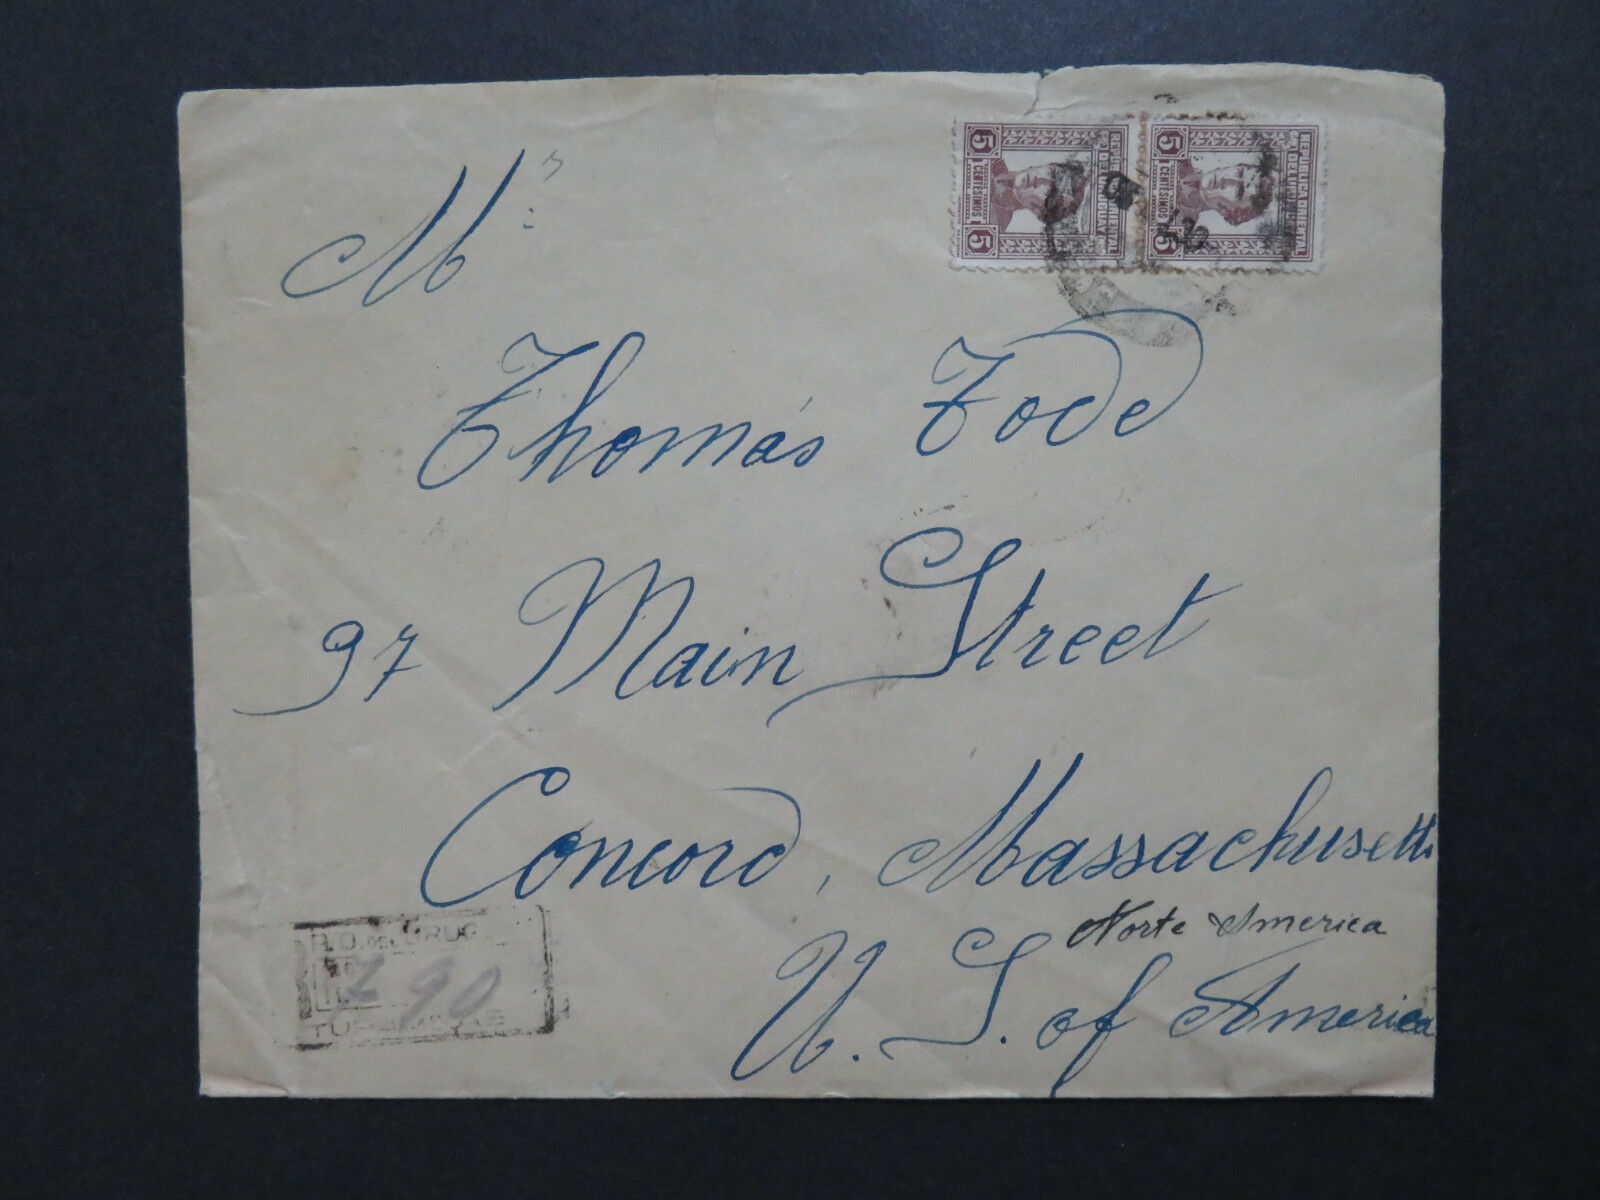 Mr.
Thomás Todd
97 Main Street
Concord, Massachusetts
Norte America
U. S. of America
REPUBLICA ORIENTAL
DEL URUGUAY
5 CENTESIMOS 5
REPUBLICA ORIENTAL
DEL URUGUAY
5 CENTESIMOS 5
R.O. DEL URUG
90